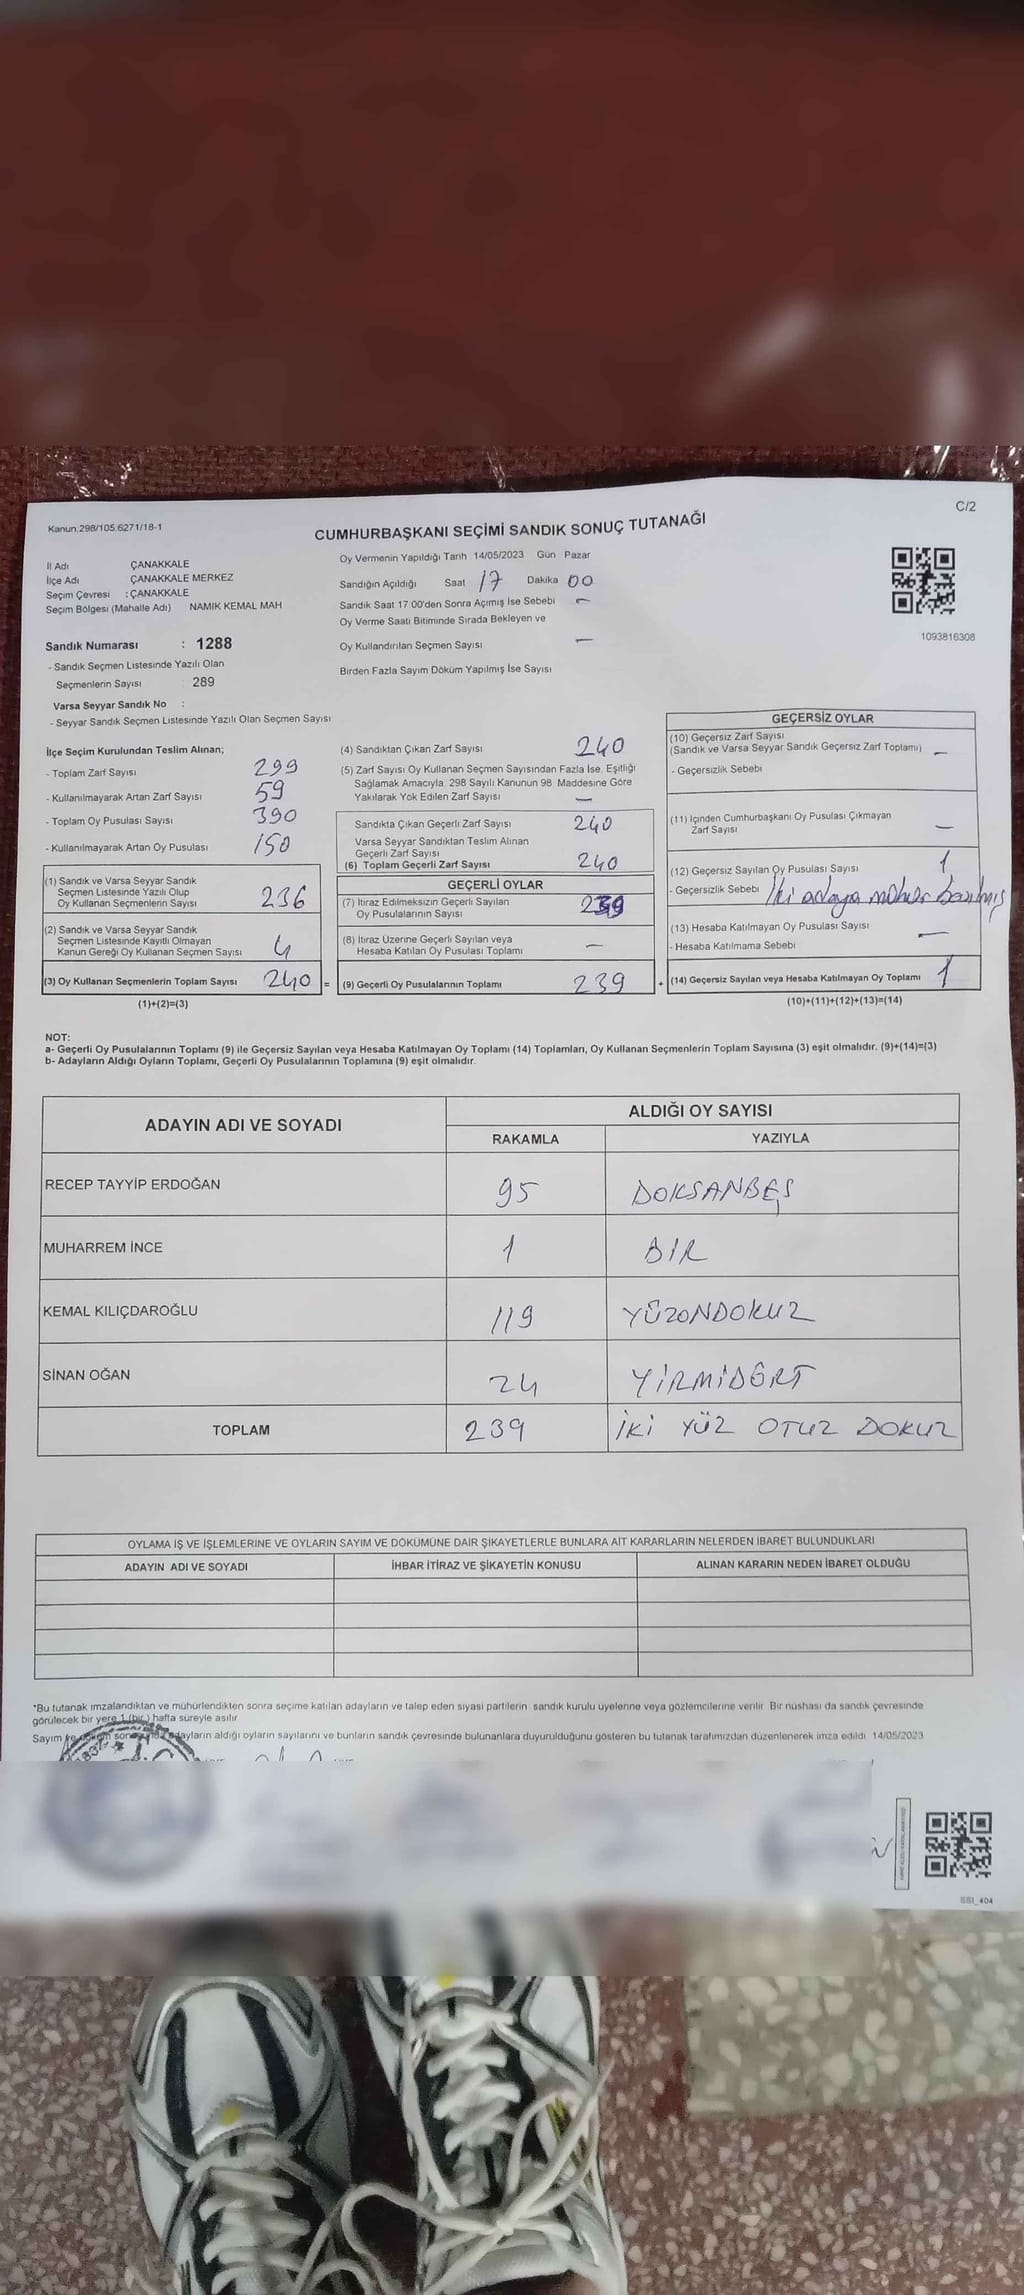 C/2
Kanun.298/105.6271/18-1
CUMHURBAŞKANI SEÇİMİ SANDIK SONUÇ TUTANAĞI
İl Adı ÇANAKKALE
İlçe Adı ÇANAKKALE MERKEZ
Seçim Çevresi : ÇANAKKALE
Seçim Bölgesi (Mahalle Adı) NAMIK KEMAL MAH
Sandık Numarası : 1288
- Sandık Seçmen Listesinde Yazılı Olan
Seçmenlerin Sayısı 289
Varsa Seyyar Sandık No :
- Seyyar Sandık Seçmen Listesinde Yazılı Olan Seçmen Sayısı
Oy Vermenin Yapıldığı Tarih 14/05/2023 Gün Pazar
Sandığın Açıldığı Saat 17 Dakika 00
Sandık Saat 17 00'den Sonra Açımış İse Sebebi –
Oy Verme Saati Bitiminde Sırada Bekleyen ve
Oy Kullandırılan Seçmen Sayısı –
Birden Fazla Sayım Döküm Yapılmış İse Sayısı
1093816308
İlçe Seçim Kurulundan Teslim Alınan;
- Toplam Zarf Sayısı 299
- Kullanılmayarak Artan Zarf Sayısı 59
- Toplam Oy Pusulası Sayısı 390
- Kullanılmayarak Artan Oy Pusulası 150
(1) Sandık ve Varsa Seyyar Sandık
Seçmen Listesinde Yazılı Olup
Oy Kullanan Seçmenlerin Sayısı 236
(2) Sandık ve Varsa Seyyar Sandık
Seçmen Listesinde Kayıtlı Olmayan
Kanun Gereği Oy Kullanan Seçmen Sayısı 4
(3) Oy Kullanan Seçmenlerin Toplam Sayısı 240 =
(1)+(2)=(3)
(4) Sandıktan Çıkan Zarf Sayısı 240
(5) Zarf Sayısı Oy Kullanan Seçmen Sayısından Fazla İse, Eşitliği
Sağlamak Amacıyla; 298 Sayılı Kanunun 98. Maddesine Göre
Yakılarak Yok Edilen Zarf Sayısı –
Sandıkta Çıkan Geçerli Zarf Sayısı 240
Varsa Seyyar Sandıktan Teslim Alınan
Geçerli Zarf Sayısı
(6) Toplam Geçerli Zarf Sayısı 240
GEÇERLİ OYLAR
(7) İtiraz Edilmeksizin Geçerli Sayılan
Oy Pusulalarının Sayısı 239
(8) İtiraz Üzerine Geçerli Sayılan veya
Hesaba Katılan Oy Pusulası Toplamı –
(9) Geçerli Oy Pusulalarının Toplamı 239 +
GEÇERSİZ OYLAR
(10) Geçersiz Zarf Sayısı
(Sandık ve Varsa Seyyar Sandık Geçersiz Zarf Toplamı) –
- Geçersizlik Sebebi
(11) İçinden Cumhurbaşkanı Oy Pusulası Çıkmayan
Zarf Sayısı –
(12) Geçersiz Sayılan Oy Pusulası Sayısı 1
- Geçersizlik Sebebi İki adaya mühür basılmış
(13) Hesaba Katılmayan Oy Pusulası Sayısı –
- Hesaba Katılmama Sebebi
(14) Geçersiz Sayılan veya Hesaba Katılmayan Oy Toplamı 1
(10)+(11)+(12)+(13)=(14)
NOT:
a- Geçerli Oy Pusulalarının Toplamı (9) ile Geçersiz Sayılan veya Hesaba Katılmayan Oy Toplamı (14) Toplamları, Oy Kullanan Seçmenlerin Toplam Sayısına (3) eşit olmalıdır. (9)+(14)=(3)
b- Adayların Aldığı Oyların Toplamı, Geçerli Oy Pusulalarının Toplamına (9) eşit olmalıdır.
ADAYIN ADI VE SOYADI ALDIĞI OY SAYISI
RAKAMLA YAZIYLA
RECEP TAYYİP ERDOĞAN 95 DOKSANBEŞ
MUHARREM İNCE 1 BIR
KEMAL KILIÇDAROĞLU 119 YÜZONDOKUZ
SİNAN OĞAN 24 YİRMİDÖRT
TOPLAM 239 İKİ YÜZ OTUZ DOKUZ
OYLAMA İŞ VE İŞLEMLERİNE VE OYLARIN SAYIM VE DÖKÜMÜNE DAİR ŞİKAYETLERLE BUNLARA AİT KARARLARIN NELERDEN İBARET BULUNDUKLARI
ADAYIN ADI VE SOYADI İHBAR İTİRAZ VE ŞİKAYETİN KONUSU ALINAN KARARIN NEDEN İBARET OLDUĞU
*Bu tutanak imzalandıktan ve mühürlendikten sonra seçime katılan adayların ve talep eden siyasi partilerin sandık kurulu üyelerine veya gözlemcilerine verilir. Bir nüshası da sandık çevresinde
görülecek bir yere 1 (bir) hafta süreyle asılır
Sayım adayların aldığı oyların sayılarını ve bunların sandık çevresinde bulunanlara duyurulduğunu gösteren bu tutanak tarafımızdan düzenlenerek imza edildi 14/05/2023